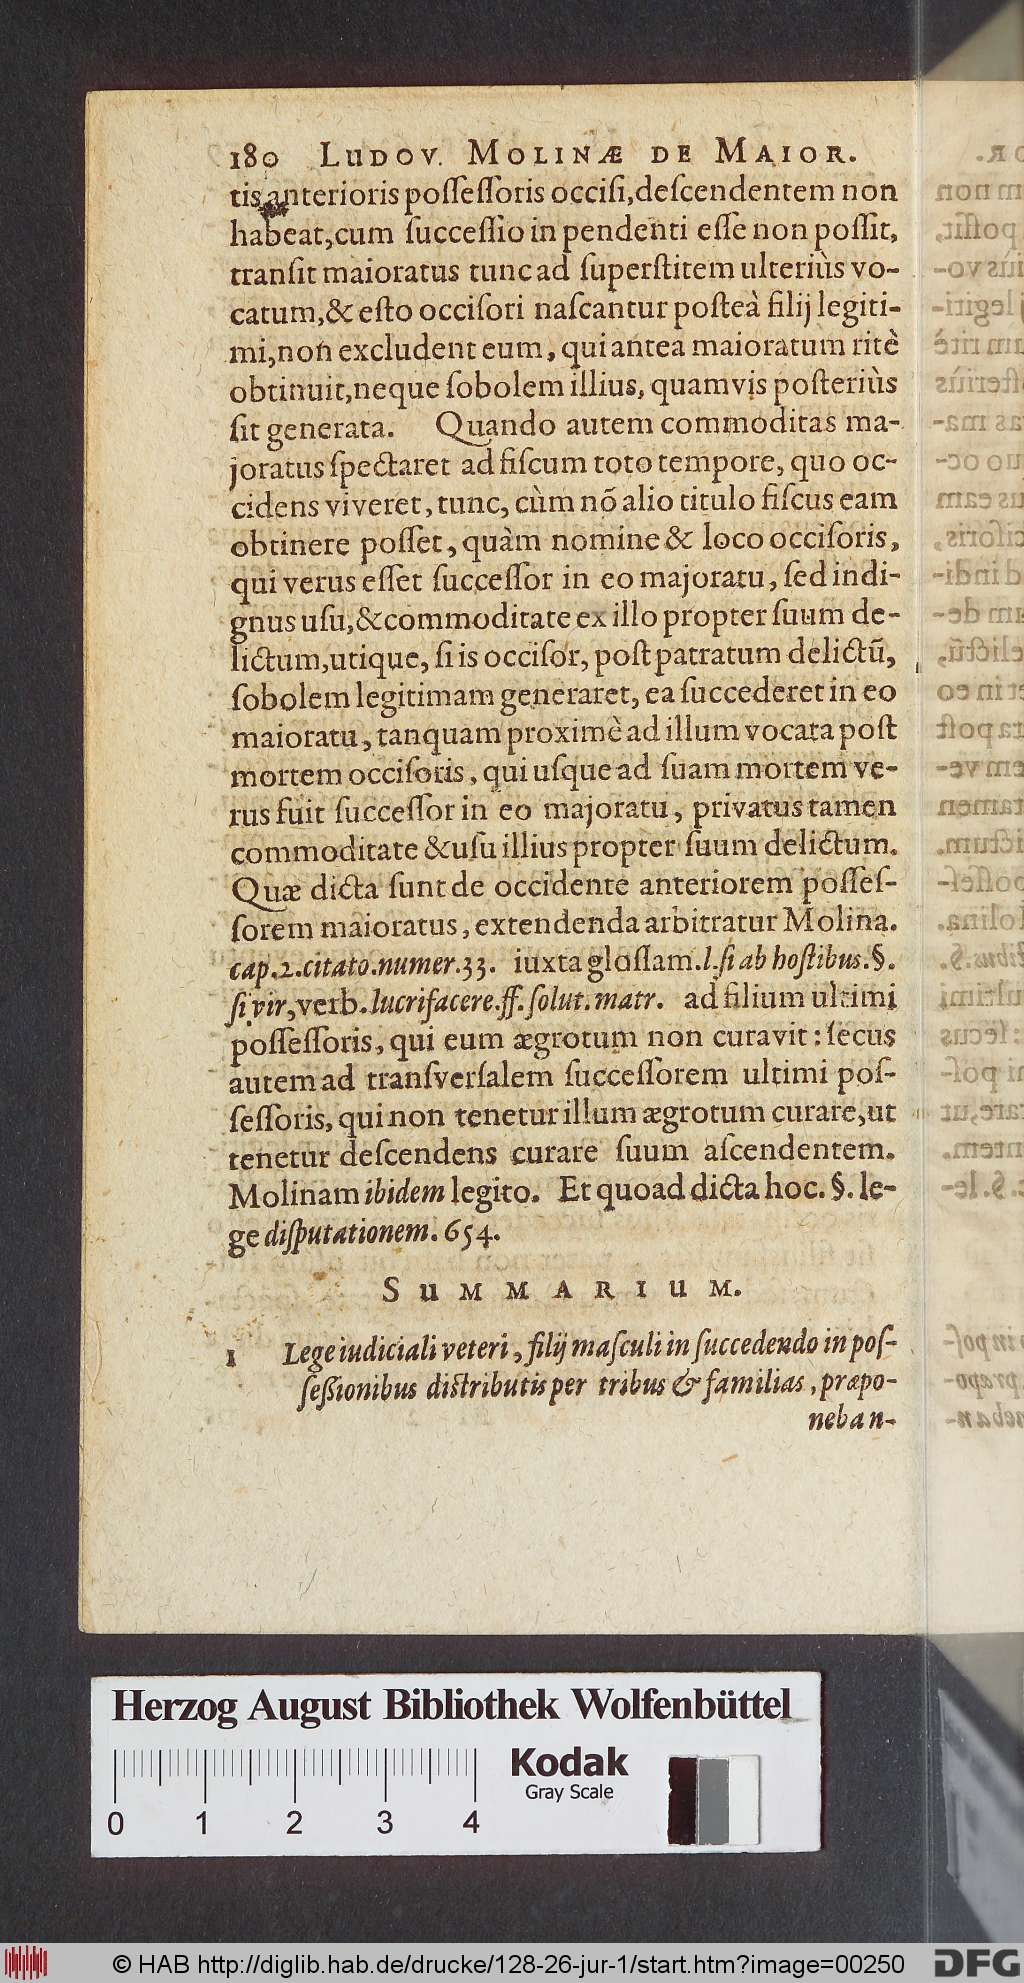 180 LUDOV. MOLINÆ DE MAIOR.
tis anterioris poſſeſſoris occiſi, deſcendentem non
habeat, cum ſucceſſio in pendenti eſſe non poſſit,
tranſit maioratus tunc ad ſuperſtitem ulteriùs vo-
catum, & eſto occiſori naſcantur poſteà filij legiti-
mi, non excludent eum, qui antea maioratum ritè
obtinuit, neque ſobolem illius, quamvis poſteriùs
ſit generata. Quando autem commoditas ma-
joratus ſpectaret ad fiſcum toto tempore, quo oc-
cidens viveret, tunc, cùm nõ alio titulo fiſcus eam
obtinere poſſet, quàm nomine & loco occiſoris,
qui verus eſſet ſucceſſor in eo majoratu, ſed indi-
gnus uſu, & commoditate ex illo propter ſuum de-
lictum, utique, ſi is occiſor, poſt patratum delictũ,
ſobolem legitimam generaret, ea ſuccederet in eo
maioratu, tanquam proximè ad illum vocata poſt
mortem occiſoris, qui uſque ad ſuam mortem ve-
rus fuit ſucceſſor in eo majoratu, privatus tamen
commoditate & uſu illius propter ſuum delictum.
Quæ dicta ſunt de occidente anteriorem poſſeſ-
ſorem maioratus, extendenda arbitratur Molina.
cap. 2. citato. numer. 33. iuxta gloſſam. l. ſi ab hoſtibus. §.
ſi vir, verb. lucrifacere. ff. ſolut. matr. ad filium ultimi
poſſeſſoris, qui eum ægrotum non curavit: ſecus
autem ad tranſverſalem ſucceſſorem ultimi poſ-
ſeſſoris, qui non tenetur illum ægrotum curare, ut
tenetur deſcendens curare ſuum aſcendentem.
Molinam ibidem legito. Et quoad dicta hoc. §. le-
ge diſputationem. 654.
SUMMARIUM.
1 Lege iudiciali veteri, filij maſculi in ſuccedendo in poſ-
ſeßionibus diſtributis per tribus & familias, præpo-
neban-
Herzog August Bibliothek Wolfenbüttel
Kodak
Gray Scale
0 1 2 3 4
© HAB http://diglib.hab.de/drucke/128-26-jur-1/start.htm?image=00250
DFG